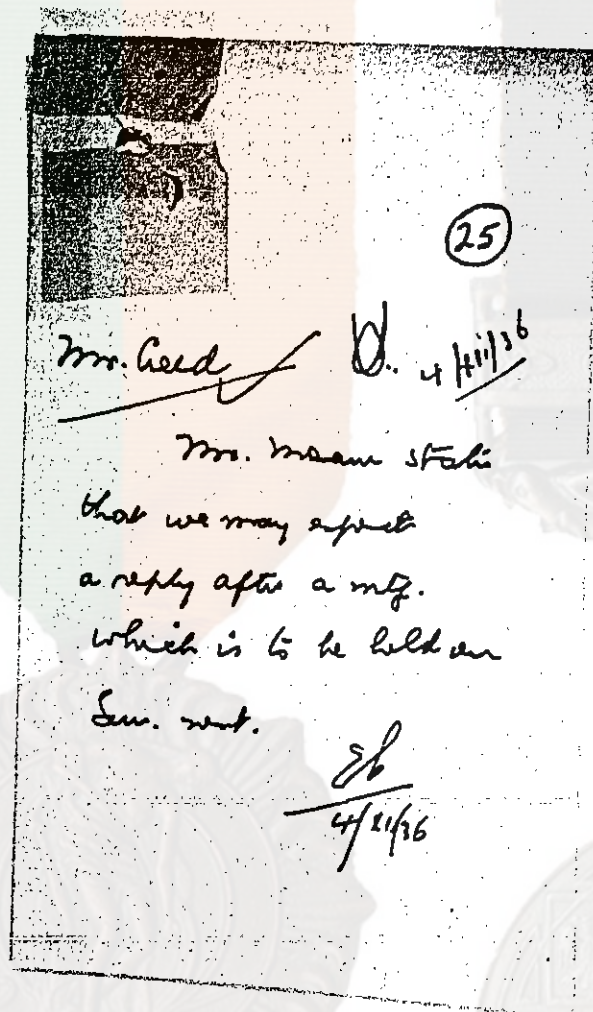 25
Mr. Creed 4/xii/36
Mr. states
that we may expect
a reply after a mtg.
which is to be held on
Sun. next.
4/xi/36